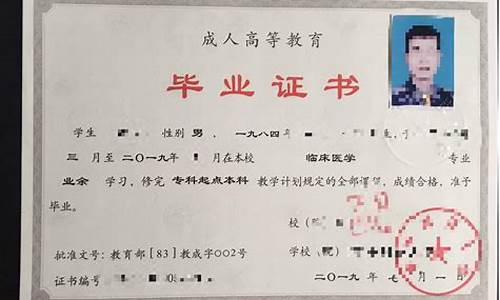 成人高等教育
毕业证书
学生 性别 男 ,一九八四年
三 月至 二〇一九年 月在本校 临床医学 专业
业余 学习,修完 专科起点本科 教学计划规定的全部课程,成绩合格,准予
毕业。
校(院
批准文号:教育部[83]教成字002号 学校(院)
证书编号 二〇一九年 七 月 一 日